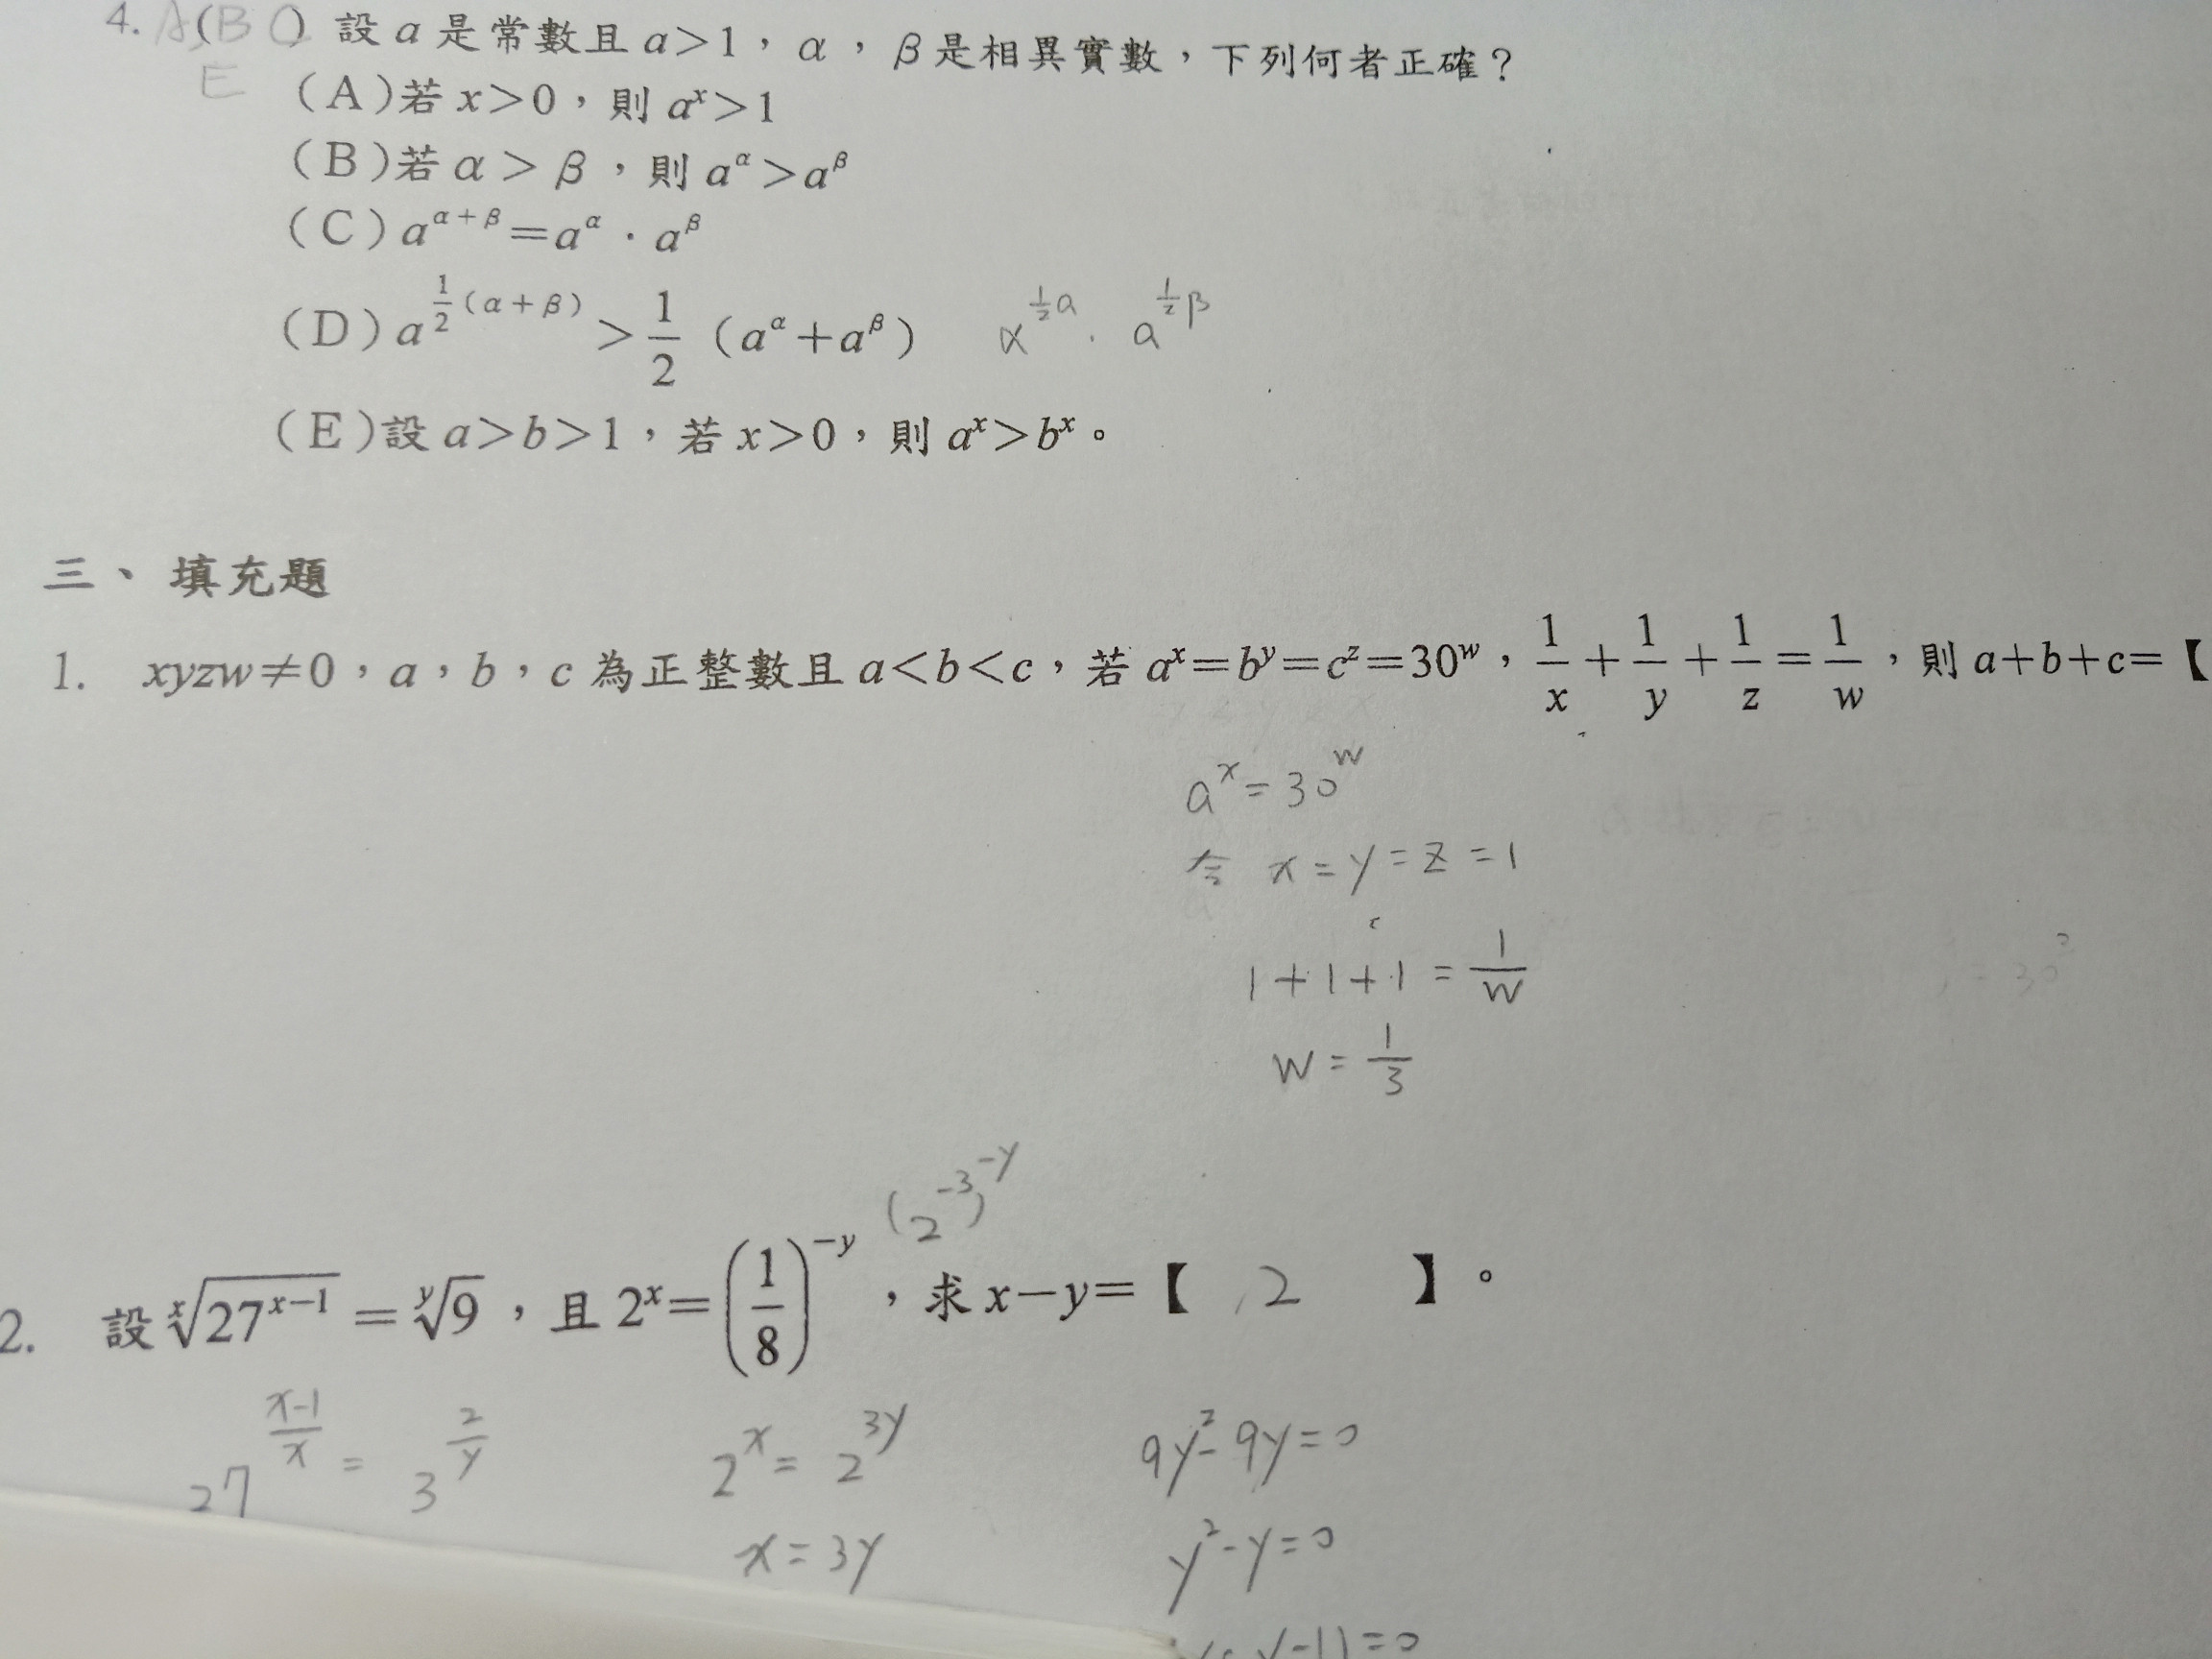 4. A(B C) 設 a 是常數且 a>1，α，β是相異實數，下列何者正確？
E
(A)若 x>0，則 aˣ>1
(B)若 α > β，則 a^α>a^β
(C) a^{α+β}=a^α · a^β
(D) a^{\frac{1}{2}(α+β)}>\frac{1}{2} (a^α+a^β) α^{\frac{1}{2}a} · a^{\frac{1}{2}β}
(E)設 a>b>1，若 x>0，則 aˣ>bˣ。
三、填充題
1. xyzw≠0，a，b，c 為正整數且 a<b<c，若 a^x=b^y=c^z=30^w，\frac{1}{x}+\frac{1}{y}+\frac{1}{z}=\frac{1}{w}，則 a+b+c=【
a^x=30^w
令 x=y=z=1
1+1+1=\frac{1}{w}
w=\frac{1}{3}
(2^{-3})^{-y}
2. 設 \sqrt[x]{27^{x-1}}=\sqrt[y]{9}，且 2^x=(\frac{1}{8})^{-y}，求 x−y=【 2 】。
27^{\frac{x-1}{x}}=3^{\frac{2}{y}} 2^x=2^{3y} 9y^2-9y=0
x=3y y^2-y=0
y-1)=0